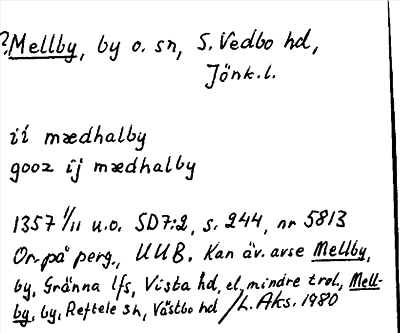 ?Mellby, by o. sn, S. Vedbo hd,
Jönk.l.
ií mædhalby
gooz íj mædhalby
1357 1/11 u.o. SD7:2, s. 244, nr 5813
Or. på perg., UUB. Kan äv. avse Mellby,
by, Gränna lfs, Vista hd, el. mindre trol., Mell-
by, by, Reftele sn, Västbo hd /L. Aks. 1980